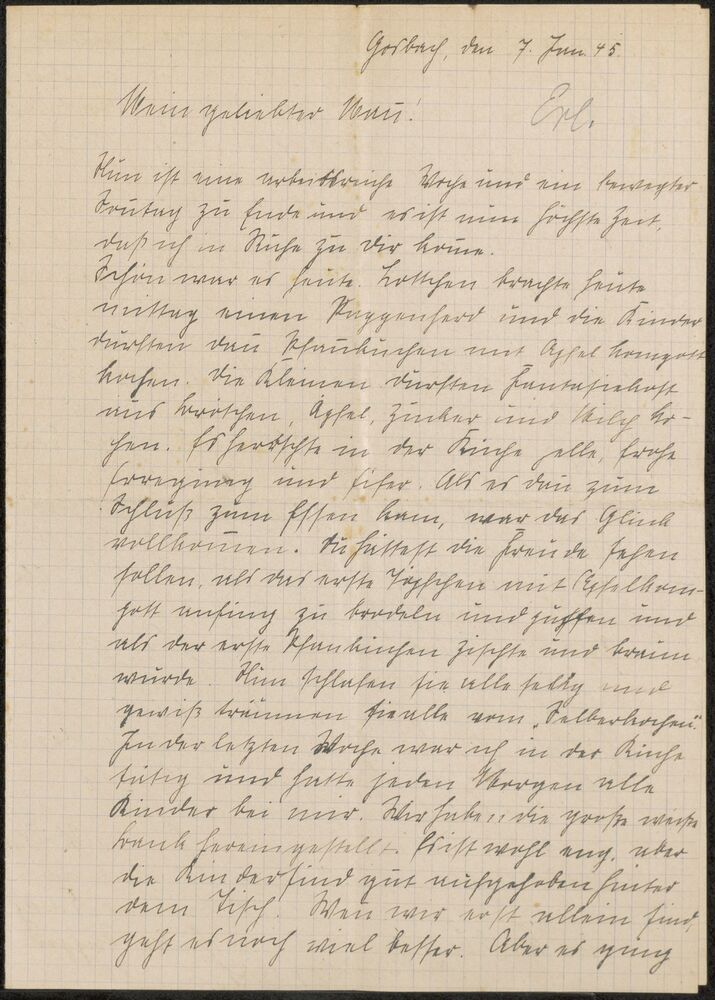 Gosbach, den 7. Jan. 45.
Mein geliebter Mann!
Erl.
Nun ist eine arbeitsreiche Woche und ein bewegter
Sonntag zu Ende und es ist nun höchste Zeit,
daß ich in Ruhe zu Dir komme.
Schön war es heute. Lottchen brachte heute
mittag einen Puppenherd und die Kinder
durften dann Pfannkuchen mit Apfelkompott
kochen. Die Kleinen durften Fantasiekost
aus Brötchen, Äpfel, Zucker und Milch ko-
chen. Es herrschte in der Küche helle, frohe
Erregung und Eifer. Als es dann zum
Schluß zum Essen kam, war das Glück
vollkommen. Du hättest die Freude sehen
sollen, als das erste Töpfchen mit Apfelkom-
pott anfing zu brodeln und puffen und
als der erste Pfannkuchen zischte und braun
wurde. Nun schlafen sie alle selig und
gewiß träumen sie alle vom „Selberkochen".
In der letzten Woche war ich in der Küche
tätig und hatte jeden Morgen alle
Kinder bei mir. Wir haben die große weiße
Bank hereingestellt. Es ist wohl eng, aber
die Kinder sind gut aufgehoben hinter
dem Tisch. Wenn wir erst allein sind,
geht es noch viel besser. Aber es ging